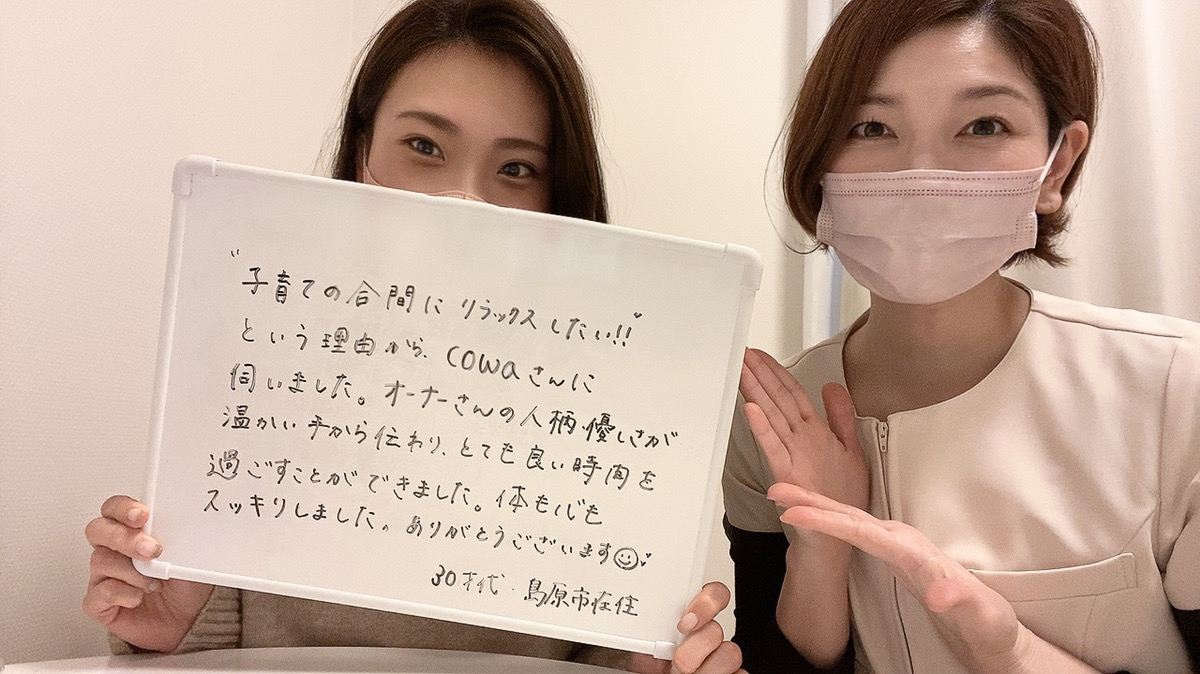 "子育ての合間に リラックスしたい!!"
という理由から、cowaさんに
伺いました。オーナーさんの人柄・優しさが
温かい手から伝わり、とても良い時間を
過ごすことができました。体も心も
スッキリしました。ありがとうございます
30才代・島原市在住